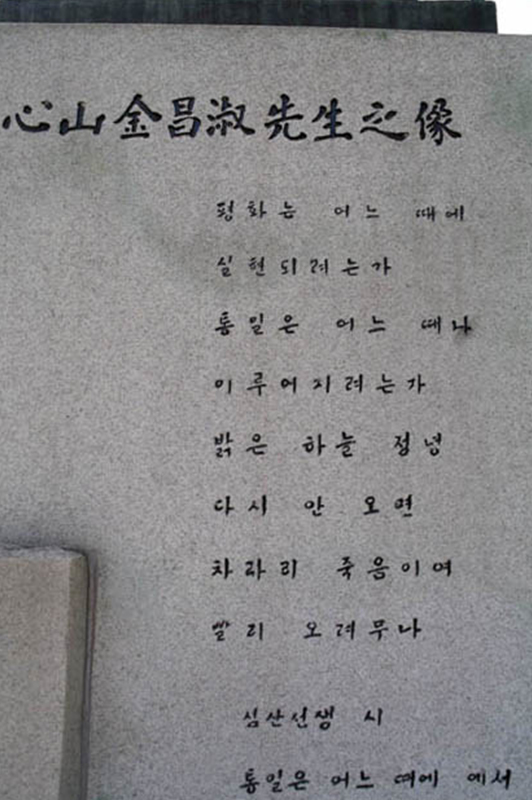 心山金昌淑先生之像
평화는 어느 때에
실현되려는가
통일은 어느 때나
이루어지려는가
밝은 하늘 정녕
다시 안 오면
차라리 죽음이여
빨리 오려무나
심산선생 시
통일은 어느 때에 에서